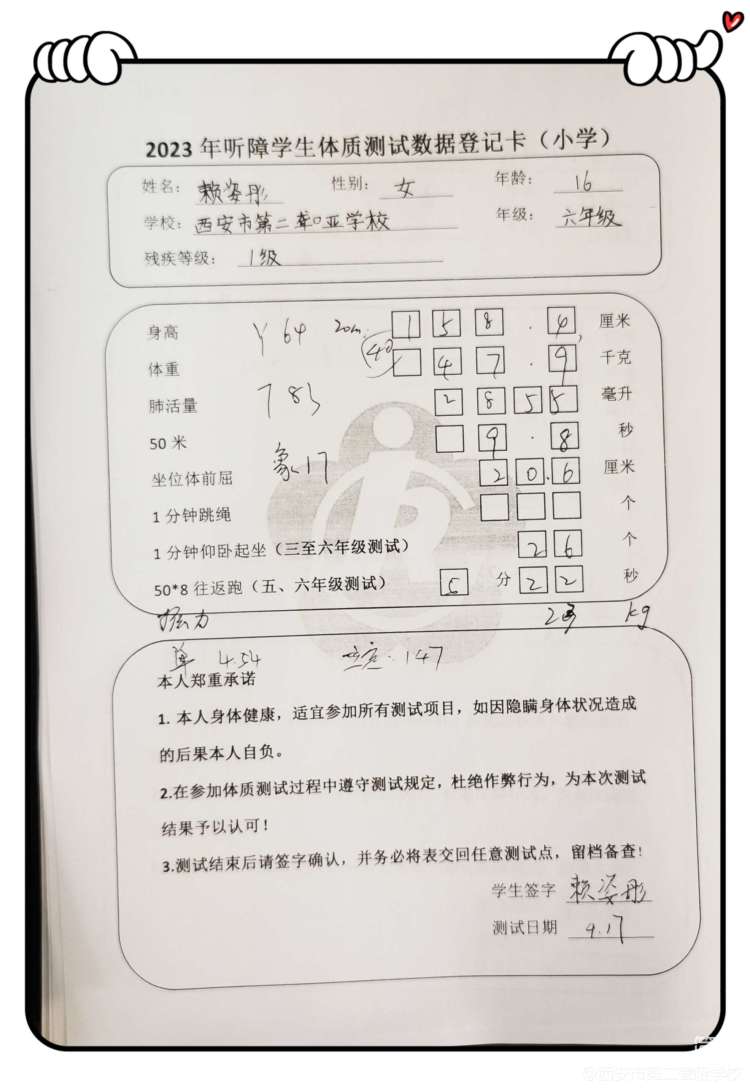 2023 年听障学生体质测试数据登记卡（小学）
姓名：赖姿彤 性别：女 年龄：16
学校：西安市第二聋哑学校 年级：六年级
残疾等级：1级
身高 Y 64 20m. 1 5 8 . 4 厘米
体重 40 4 7 . 9 千克
肺活量 T 83 2 8 5 5 毫升
50 米 9 . 8 秒
坐位体前屈 象17 2 0 . 6 厘米
1 分钟跳绳 个
1 分钟仰卧起坐（三至六年级测试） 2 6 个
50*8 往返跑（五、六年级测试） 5 分 2 2 秒
握力 kg
单 4.54 147
本人郑重承诺
1. 本人身体健康，适宜参加所有测试项目，如因隐瞒身体状况造成
的后果本人自负。
2.在参加体质测试过程中遵守测试规定，杜绝作弊行为，为本次测试
结果予以认可！
3.测试结束后请签字确认，并务必将表交回任意测试点，留档备查！
学生签字 赖姿彤
测试日期 9.17